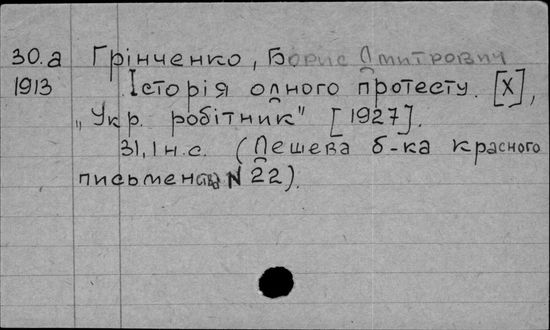 30.а Грінченко, Борис Дмитрович
1913 Історія одного протесту. [Х],
„Укр. робітник" [1927].
31,1 н.с. (Дешева б-ка красного
письменства N 22).